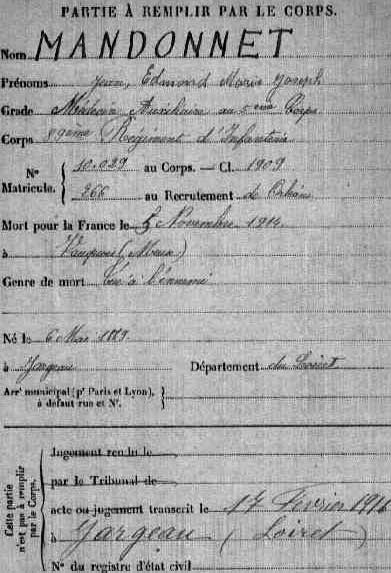 PARTIE À REMPLIR PAR LE CORPS.
Nom MANDONNET
Prénoms Jean, Edmond Marie Joseph
Grade Médecin Auxiliaire au 5ème Corps
Corps 89ème Régiment d'Infanterie
N° Matricule. 10.029 au Corps. — Cl. 1909
266 au Recrutement de Orléans
Mort pour la France le 5 Novembre 1914
à Vauquois (Meuse)
Genre de mort tué à l'ennemi
Né le 6 Mai 1889
à Jargeau Département du Loiret
Arrt municipal (pr Paris et Lyon), à défaut rue et N°.
Cette partie n'est pas à remplir par le Corps.
Jugement rendu le
par le Tribunal de
acte ou jugement transcrit le 17 Février 1916
à Jargeau (Loiret)
N° du registre d'état civil